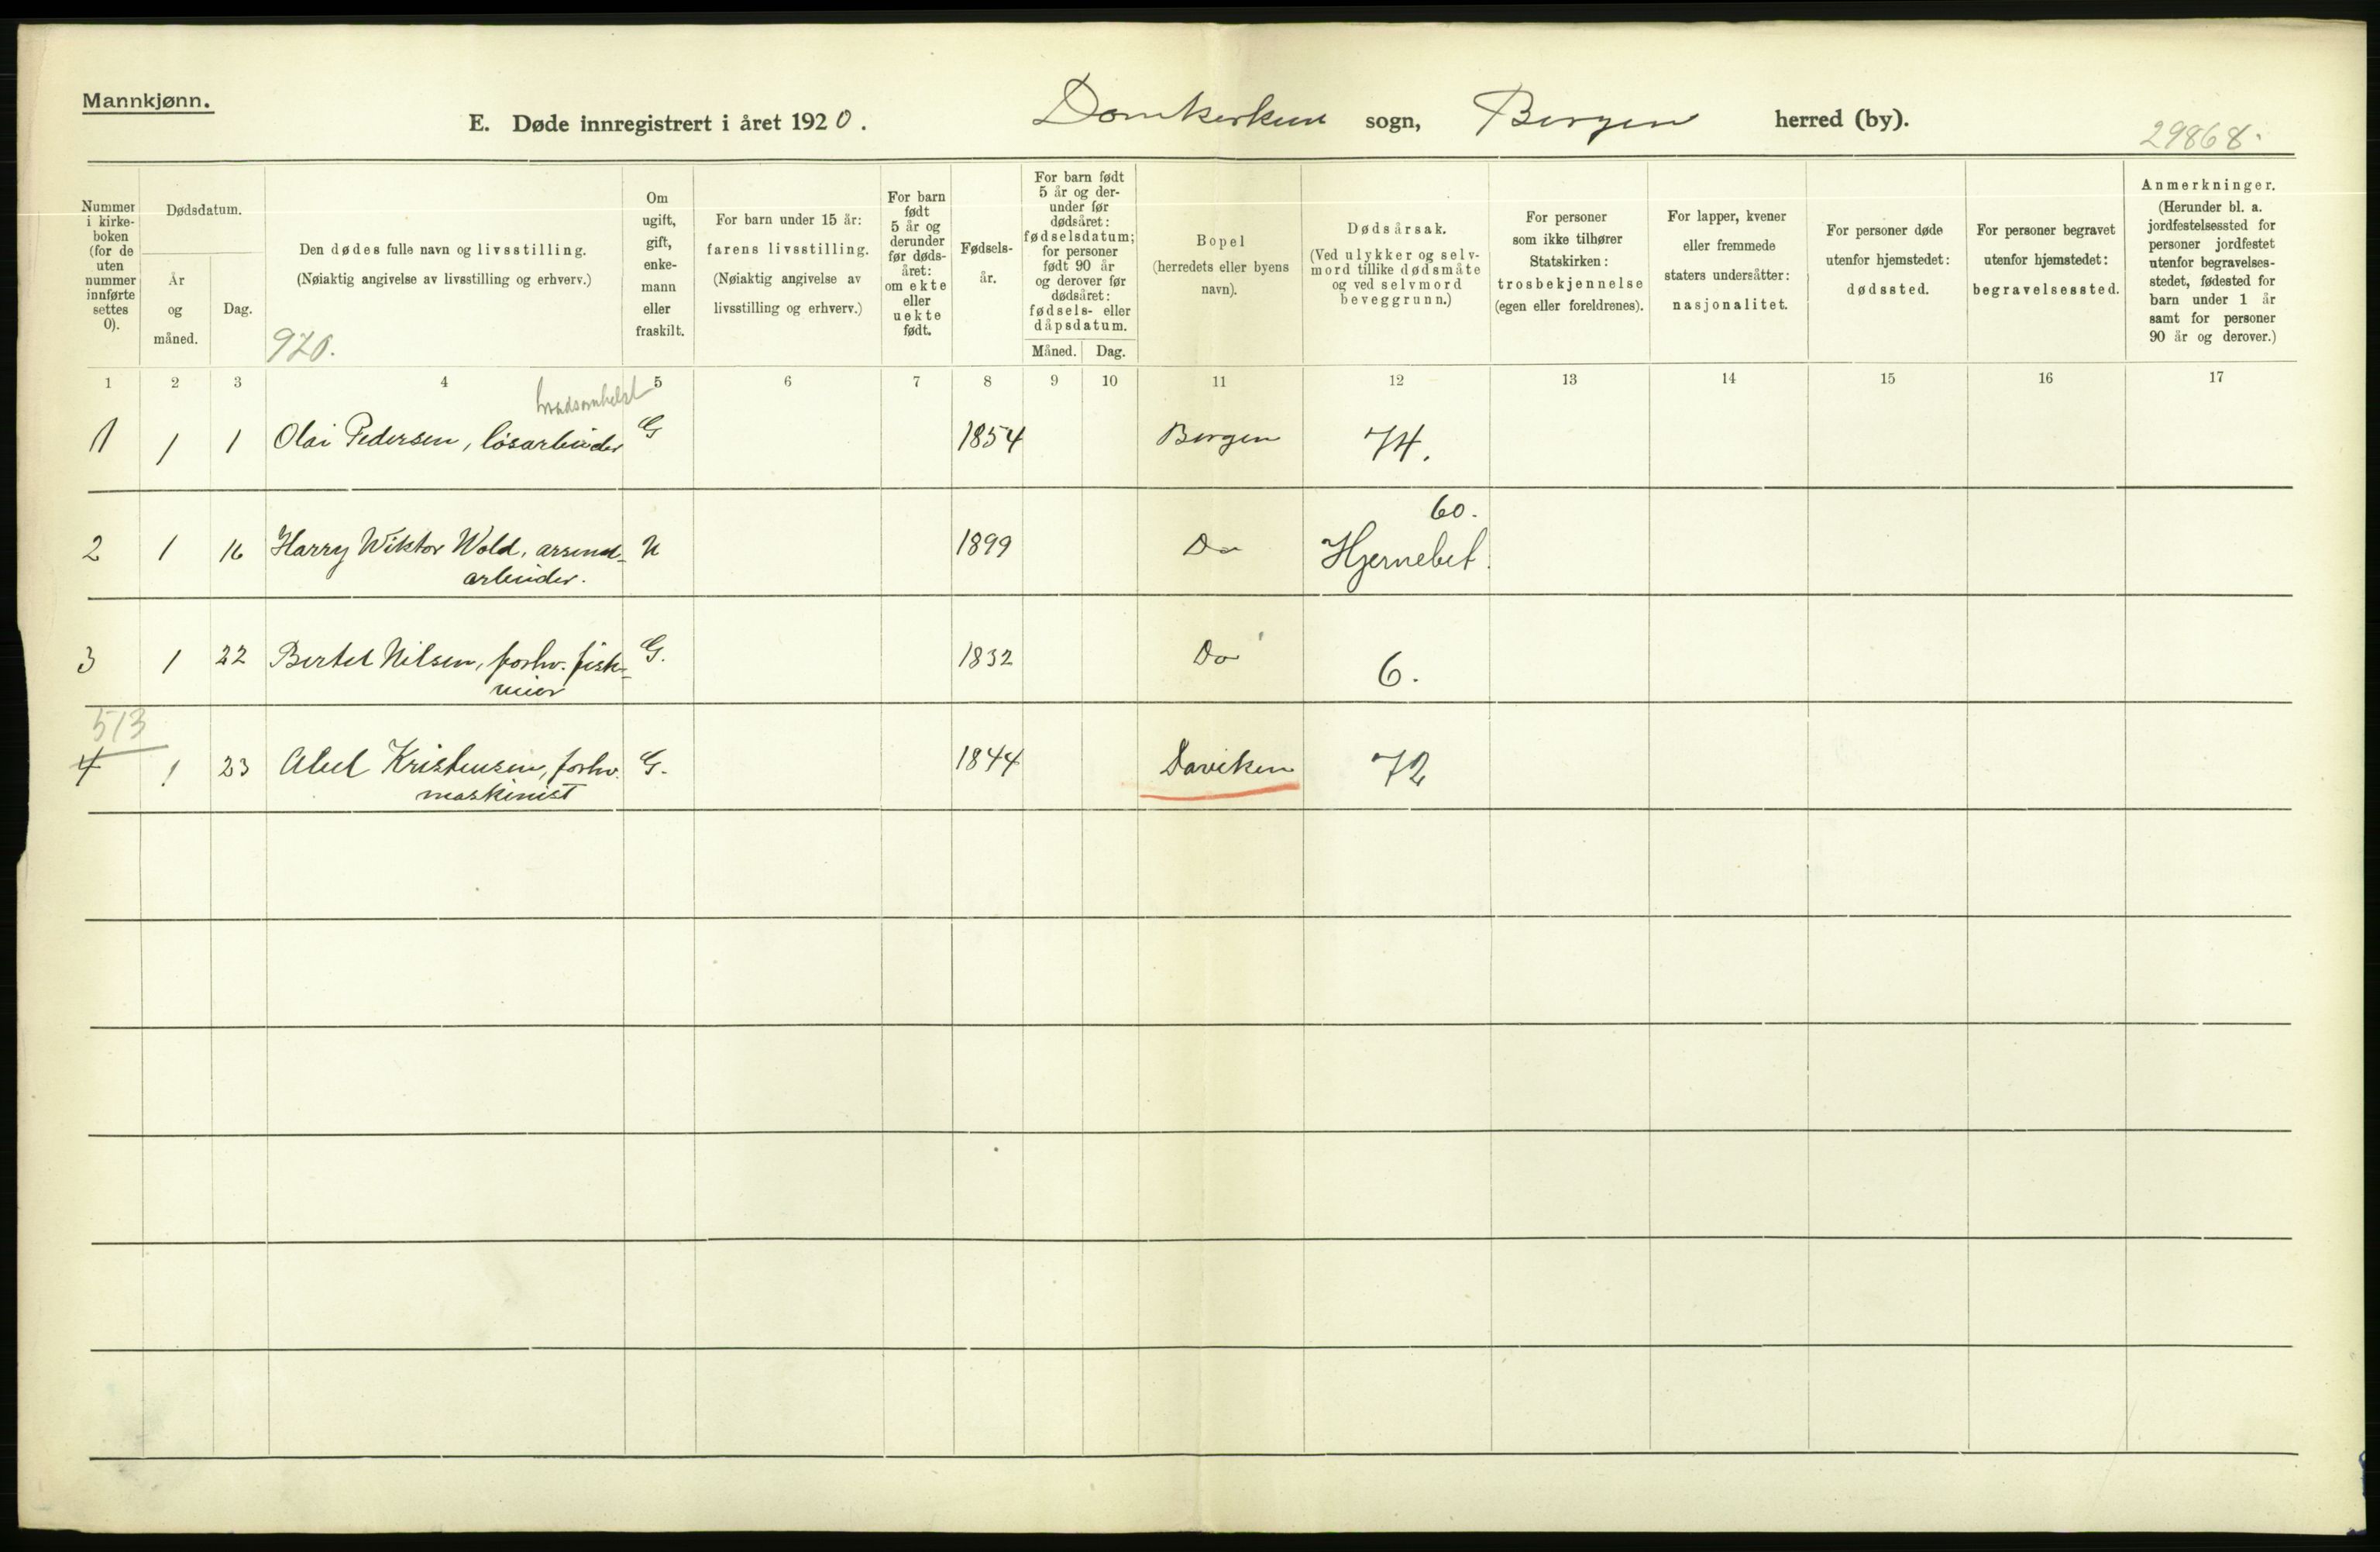 Mannkjønn.
E. Døde innregistrert i året 1920. Domkirken sogn, Bergen herred (by).
29868.
Nummer
i kirke-
boken
(for de
uten
nummer
innførte
settes
0).
Dødsdatum.
År
og
måned.
Dag.
Den dødes fulle navn og livsstilling.
(Nøiaktig angivelse av livsstilling og erhverv.)
920.
Om
ugift,
gift,
enke-
mann
eller
fraskilt.
For barn under 15 år:
farens livsstilling.
(Nøiaktig angivelse av
livsstilling og erhverv.)
For barn
født
5 år og
derunder
før døds-
året:
om ekte
eller
uekte
født.
Fødsels-
år.
For barn født
5 år og der-
under før
dødsåret:
fødselsdatum;
for personer
født 90 år
og derover før
dødsåret:
fødsels- eller
dåpsdatum.
Måned. Dag.
Bopel
(herredets eller byens
navn).
Dødsårsak.
(Ved ulykker og selv-
mord tillike dødsmåte
og ved selvmord
beveggrunn.)
For personer
som ikke tilhører
Statskirken:
trosbekjennelse
(egen eller foreldrenes).
For lapper, kvener
eller fremmede
staters undersåtter:
nasjonalitet.
For personer døde
utenfor hjemstedet:
dødssted.
For personer begravet
utenfor hjemstedet:
begravelsessted.
Anmerkninger.
(Herunder bl. a.
jordfestelsessted for
personer jordfestet
utenfor begravelses-
stedet, fødested for
barn under 1 år
samt for personer
90 år og derover.)
1 2 3 4 5 6 7 8 9 10 11 12 13 14 15 16 17
hvadsomhelst
1 1 1 Olai Pedersen, løsarbeider G 1854 Bergen 74.
60.
2 1 16 Harry Wiktor Wold, arsenal- U 1899 Do Hjernebet.
arbeider.
3 1 22 Bertel Nilsen, forhv. fisk- G. 1832 Do 6.
eier
513
4 1 23 Abel Kristensen, forhv. G. 1844 Daviken 72
maskinist